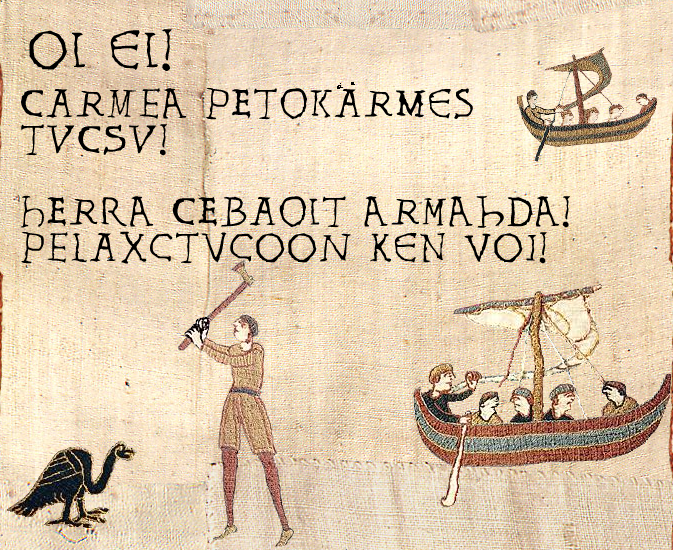 OI EI!
CARMEA PETOKÄRMES
TVCSV!
hERRA CEBAOIT ARMAhDA!
PELAXCTVCOON KEN VOI!